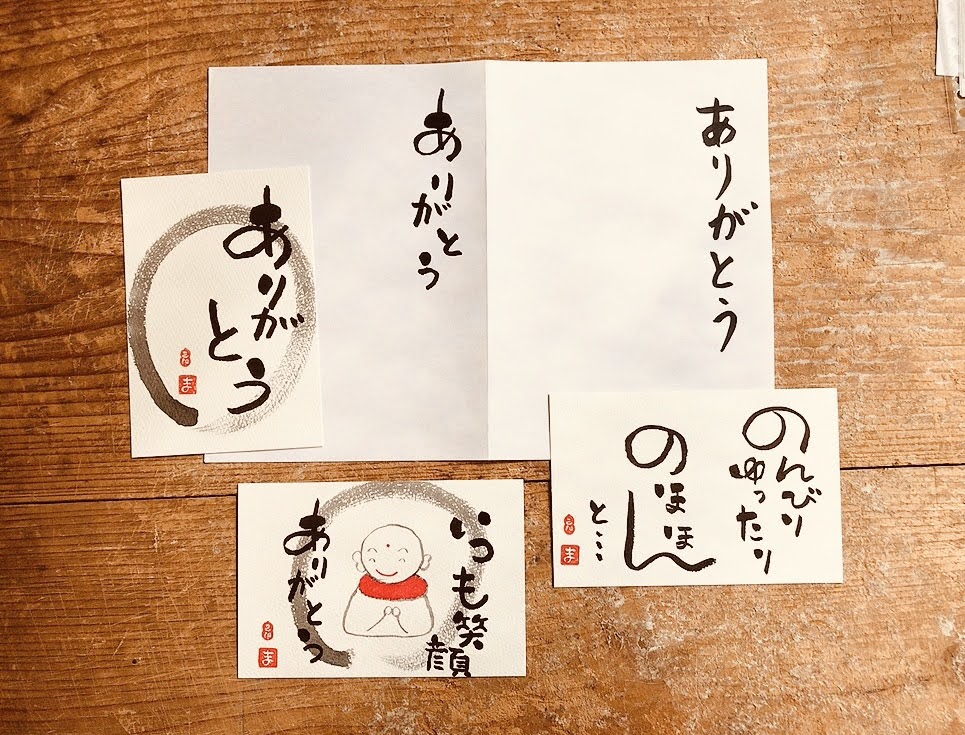 ありがとう
ありがとう
ありがとう
ま
のんびり
ゆったり
のほほん
と…
ま
いつも笑顔
ありがとう
ま